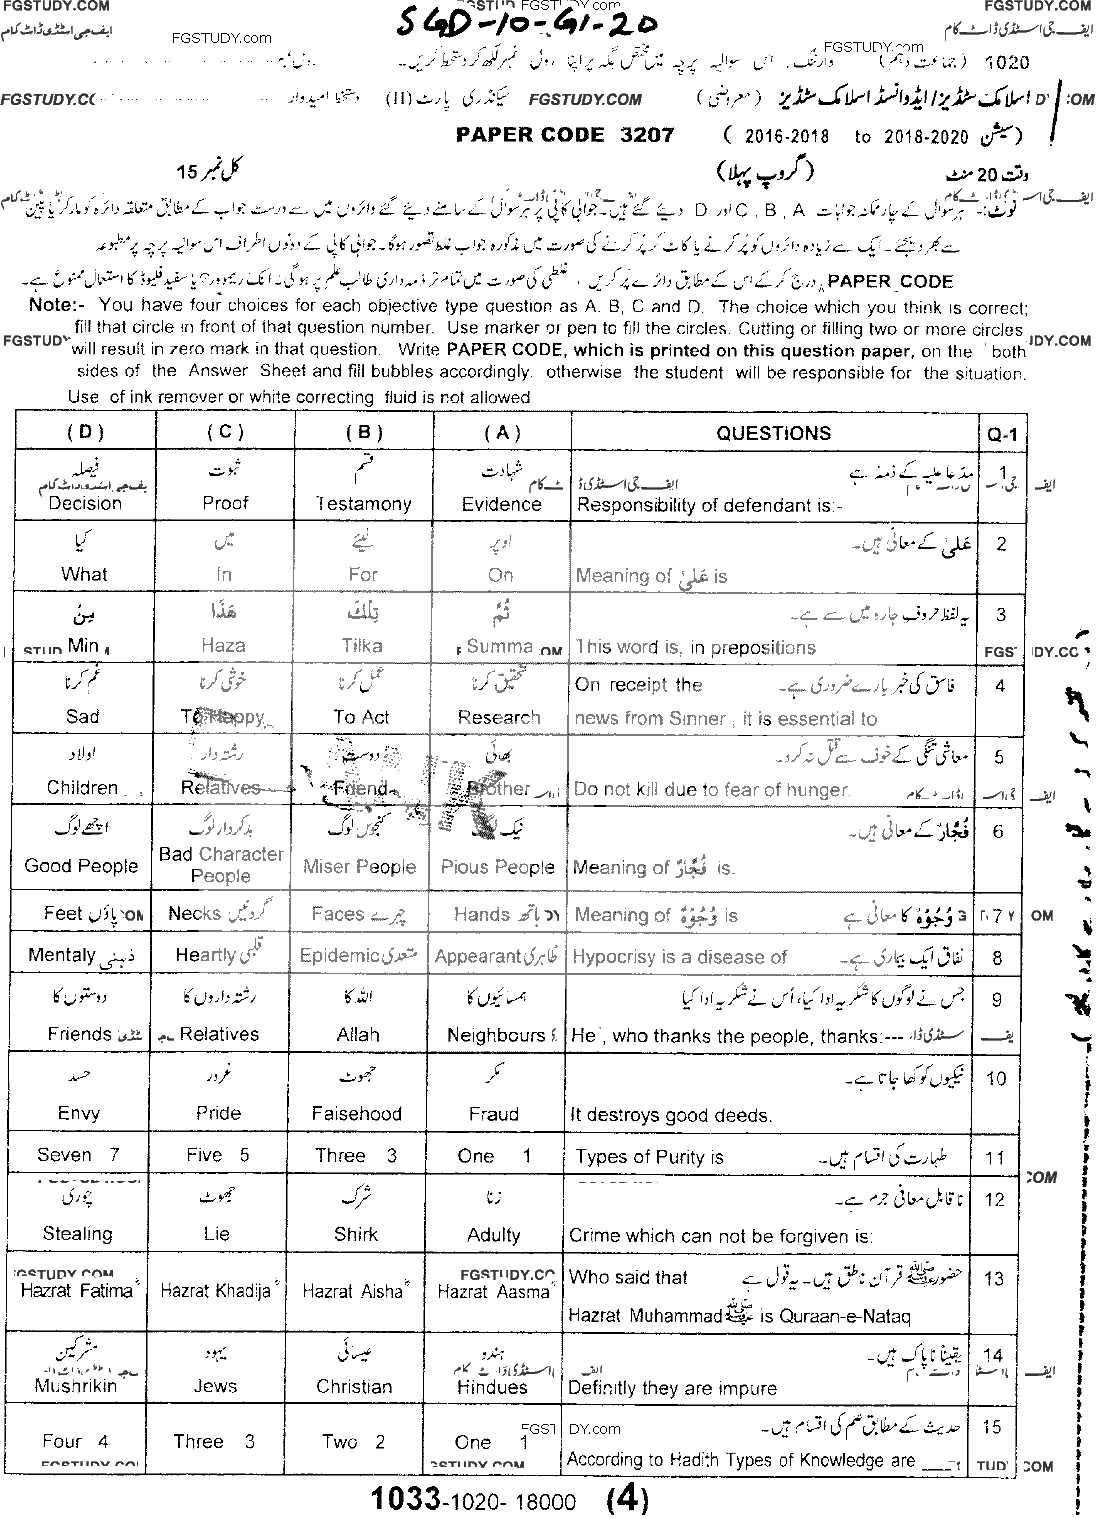 FGSTUDY.COM FGSTUDY.com FGSTUDY.COM
ایف جی اسٹڈی ڈاٹ کام SGD-10-G1-20 ایف جی اسٹڈی ڈاٹ کام
FGSTUDY.com FGSTUDY.com
1020 (جماعت دہم) وارننگ۔ اس سوالیہ پرچہ میں مختص جگہ پر اپنا رولی نمبر لکھ کر دستخط کریں۔ رول نمبر
اسلامک سٹڈیز/ایڈوانسڈ اسلامک سٹڈیز (معروضی) FGSTUDY.COM سیکنڈری پارٹ (II) دستخط امیدوار
PAPER CODE 3207 ( 2016-2018 to 2018-2020 سیشن)
وقت 20 منٹ (گروپ پہلا) کل نمبر 15
نوٹ:- ہر سوال کے چار ممکنہ جوابات A ، B ، C اور D دیئے گئے ہیں۔ جوابی کاپی پر ہر سوال کے سامنے دیئے گئے دائروں میں سے درست جواب کے مطابق متعلقہ دائرہ کو مارکر یا پین
سے بھر دیجئے۔ ایک سے زیادہ دائروں کو پُر کرنے یا کاٹ کر پُر کرنے کی صورت میں مذکورہ جواب غلط تصور ہوگا۔ جوابی کاپی کے دونوں اطراف اس سوالیہ پرچہ پر مطبوعہ
PAPER CODE درج کر کے اس کے مطابق دائرے پُر کریں ، غلطی کی صورت میں تمام تر ذمہ داری طالب علم پر ہوگی۔ انک ریموور یا سفید فلیوڈ کا استعمال ممنوع ہے۔
Note:- You have four choices for each objective type question as A. B, C and D. The choice which you think is correct;
fill that circle in front of that question number. Use marker or pen to fill the circles. Cutting or filling two or more circles
FGSTUDY will result in zero mark in that question. Write PAPER CODE, which is printed on this question paper, on the both DY.COM
sides of the Answer Sheet and fill bubbles accordingly. otherwise the student will be responsible for the situation.
Use of ink remover or white correcting fluid is not allowed
( D ) ( C ) ( B ) ( A ) QUESTIONS Q-1
فیصلہ ثبوت قسم شہادت مدّعا علیہ کے ذمّہ ہے 1
Decision Proof Testamony Evidence Responsibility of defendant is:-
کیا میں لیئے اوپر عَلیٰ کے معانی ہیں۔ 2
What In For On Meaning of عَلیٰ is
مِنْ هَذَا تِلْكَ ثُمَّ یہ لفظ حروف جارہ میں سے ہے۔ 3
Min Haza Tilka Summa This word is, in prepositions
غم کرنا خوشی کرنا عمل کرنا تحقیق کرنا On receipt the فاسق کی خبر بارے ضروری ہے۔ 4
Sad To Happy To Act Research news from Sinner , it is essential to
اولاد رشتہ دار دوست بھائی معاشی تنگی کے خوف سے قتل نہ کرو۔ 5
Children Relatives Friend Brother Do not kill due to fear of hunger.
اچھے لوگ بدکردار لوگ کنجوس لوگ نیک لوگ فُجَّارٌ کے معانی ہیں۔ 6
Good People Bad Character People Miser People Pious People Meaning of فُجَّارٌ is.
Feet پاؤں Necks گردنیں Faces چہرے Hands ہاتھ Meaning of وُجُوْهٌ is وُجُوْهٌ کا معانی ہے 7
Mentaly ذہنی Heartly قلبی Epidemic متعدی Appearant ظاہری Hypocrisy is a disease of نفاق ایک بیماری ہے۔ 8
دوستوں کا رشتہ داروں کا اللہ کا ہمسائیوں کا جس نے لوگوں کا شکریہ ادا کیا، اُس نے شکریہ ادا کیا 9
Friends Relatives Allah Neighbours He , who thanks the people, thanks:---
حسد غرور جھوٹ مکر نیکیوں کو کھا جاتا ہے۔ 10
Envy Pride Faisehood Fraud It destroys good deeds.
Seven 7 Five 5 Three 3 One 1 Types of Purity is طہارت کی اقسام ہیں۔ 11
چوری جھوٹ شرک زنا ناقابل معافی جرم ہے۔ 12
Stealing Lie Shirk Adulty Crime which can not be forgiven is:
Hazrat Fatima Hazrat Khadija Hazrat Aisha Hazrat Aasma Who said that حضور ﷺ قرآن ناطق ہیں۔ یہ قول ہے 13
Hazrat Muhammad ﷺ is Quraan-e-Nataq
مشرکین یہود عیسائی ہندو یقیناً ناپاک ہیں۔ 14
Mushrikin Jews Christian Hindues Definitly they are impure
حدیث کے مطابق علم کی اقسام ہیں۔ 15
Four 4 Three 3 Two 2 One 1 According to Hadith Types of Knowledge are ___
1033-1020- 18000 (4)